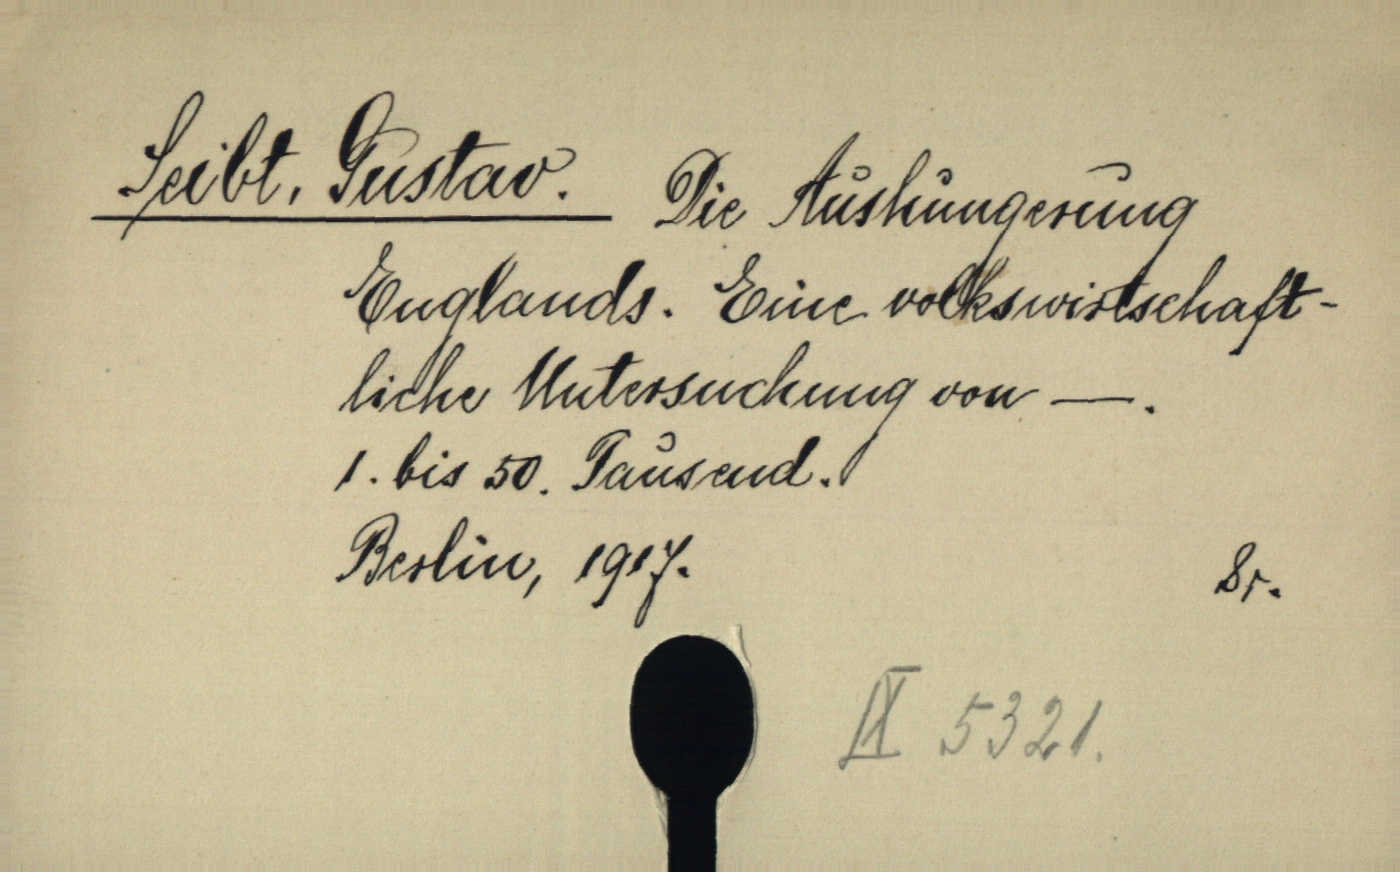 Seibt, Gustav. Die Aushungerung
Englands. Eine volkswirtschaft-
liche Untersuchung von —.
1. bis 50. Tausend.
Berlin, 1917. 8r.
IX 5321.